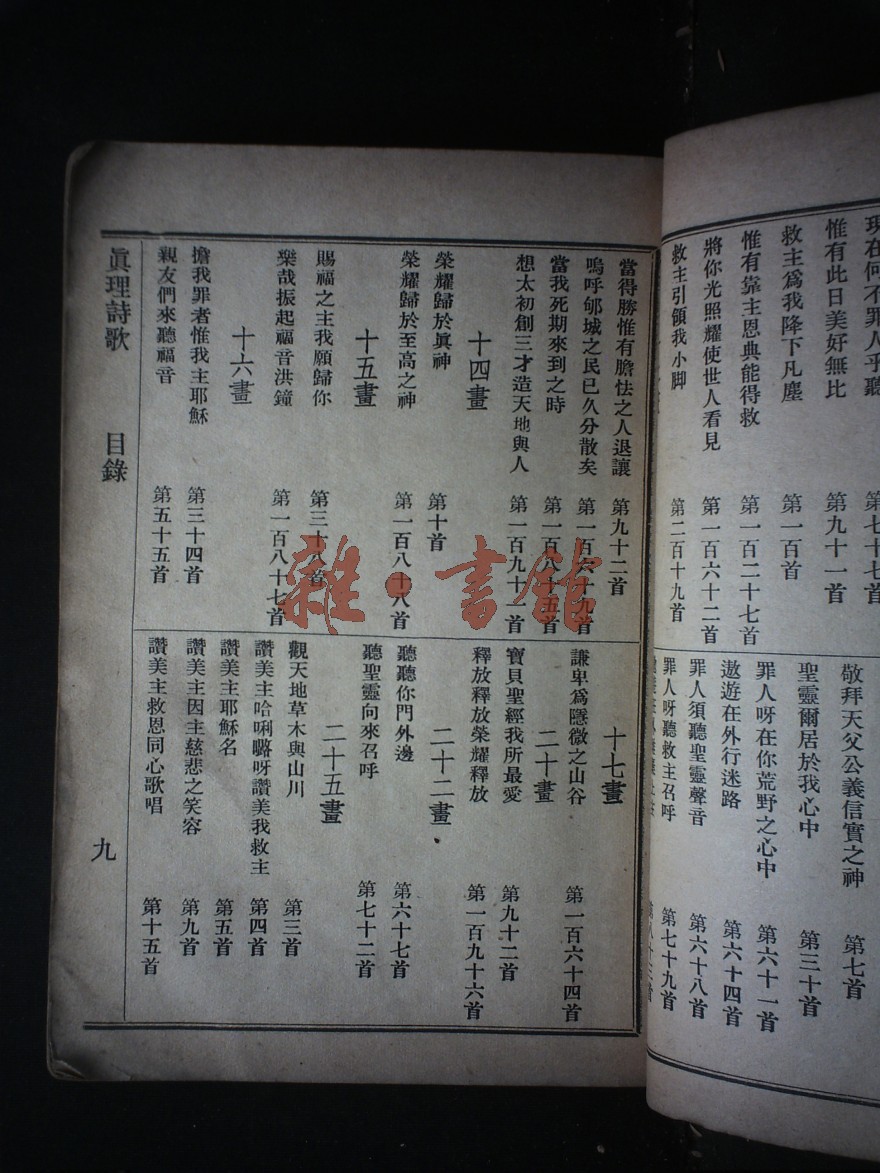 現在何不罪人乎聽 第七十七首
惟有此日美好無比 第九十一首
救主爲我降下凡塵 第一百首
惟有靠主恩典能得救 第一百二十七首
將你光照耀使世人看見 第一百六十二首
救主引領我小脚 第二百十九首
敬拜天父公義信實之神 第七首
聖靈爾居於我心中 第三十首
罪人呀在你荒野之心中 第六十一首
遨遊在外行迷路 第六十四首
罪人須聽聖靈聲音 第六十八首
罪人呀聽救主召呼 第七十九首
當得勝惟有膽怯之人退讓 第九十二首
嗚呼郇城之民已久分散矣 第一百六十九首
當我死期來到之時 第一百八十五首
想太初創三才造天地與人 第一百九十一首
十四畫
榮耀歸於眞神 第十首
榮耀歸於至高之神 第一百八十八首
十五畫
賜福之主我願歸你 第三十八首
樂哉振起福音洪鐘 第一百八十七首
十六畫
擔我罪者惟我主耶穌 第三十四首
親友們來聽福音 第五十五首
十七畫
謙卑爲隱微之山谷 第一百六十四首
二十畫
寶貝聖經我所最愛 第九十二首
釋放釋放榮耀釋放 第一百九十六首
二十二畫
聽聽你門外邊 第六十七首
聽聖靈向來召呼 第七十二首
二十五畫
觀天地草木與山川 第三首
讚美主哈唎嚕呀讚美我救主 第四首
讚美主耶穌名 第五首
讚美主因主慈悲之笑容 第九首
讚美主救恩同心歌唱 第十五首
眞理詩歌 目錄 九
雜·書館